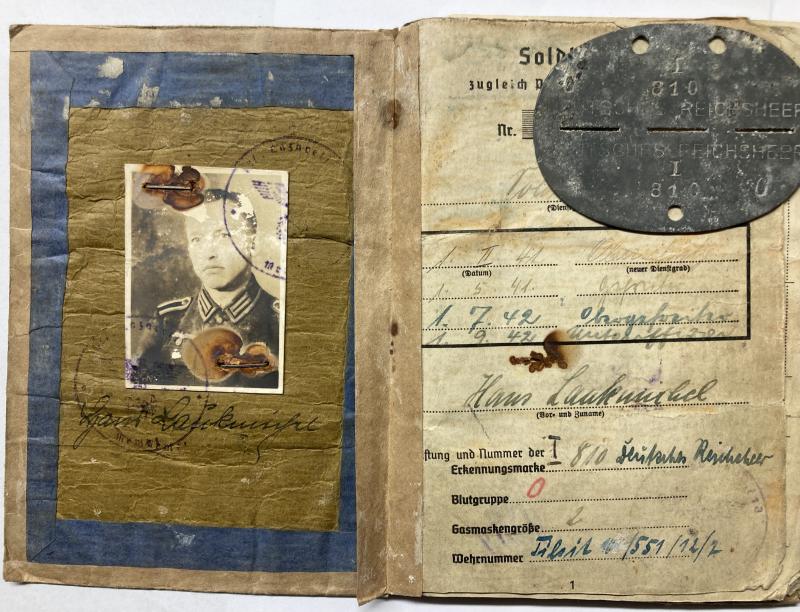 Hans Laukmichel
Sold
zugleich P
Nr.
I
810
DEUTSCHES REICHSHEER
DEUTSCHES REICHSHEER
I
810 O
(Dienst
1. II 41
(Datum) (neuer Dienstgrad)
1. 5. 41.
1. 7. 42 Obergefreiter
1. 9. 42 Unteroffizier
Hans Laukmichel
(Vor- und Zuname)
ftung und Nummer der
Erkennungsmarke I 810 Deutsches Reichsheer
Blutgruppe O
Gasmaskengröße 2
Wehrnummer Tilsit /551/12/2
1